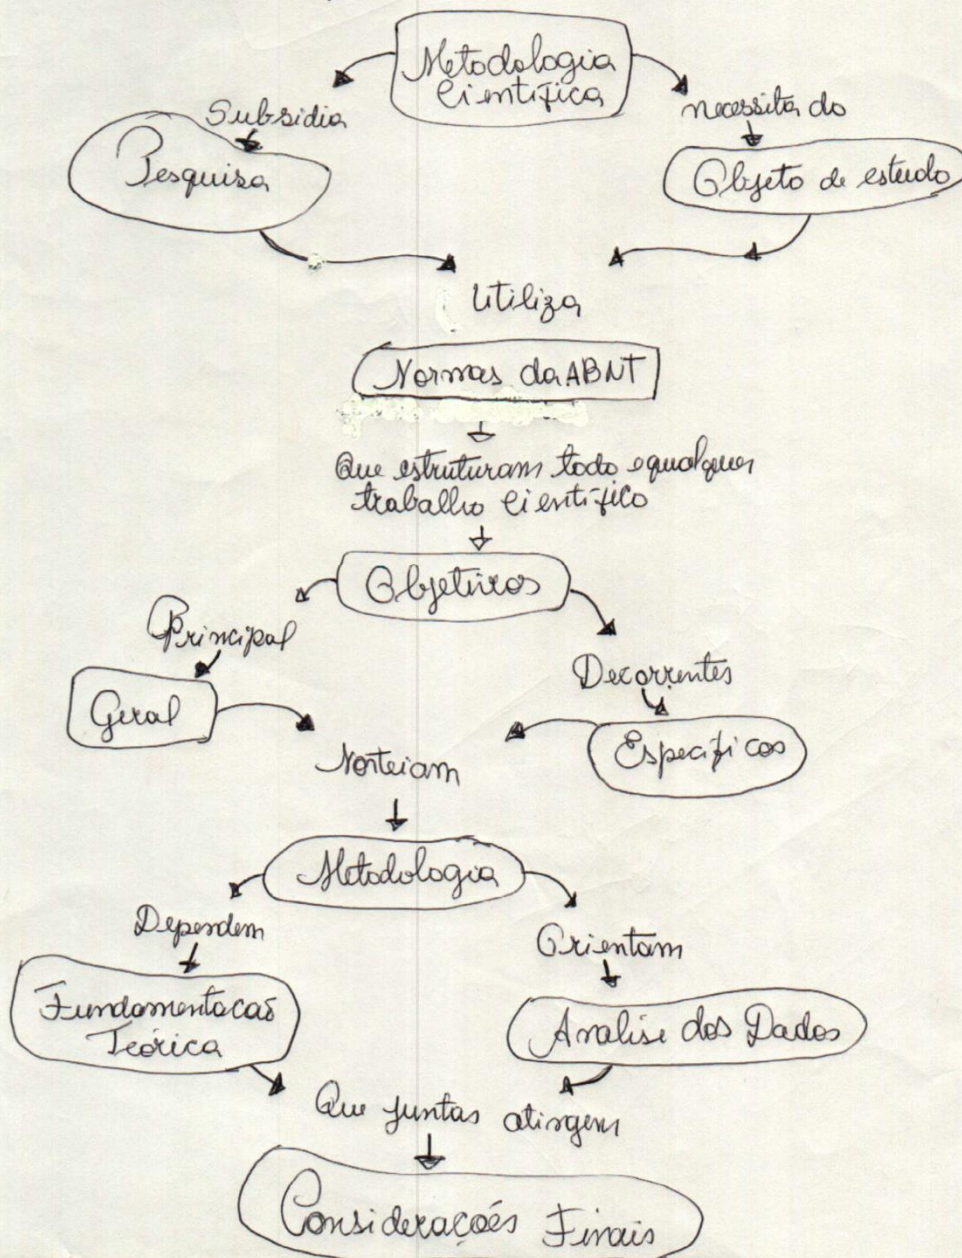 Metodologia
Científica
Subsidia
necessita do
Pesquisa
Objeto de estudo
Utiliza
Normas da ABNT
Que estruturam todo e qualquer
trabalho Científico
Objetivos
Principal
Decorrentes
Geral
Específicos
Norteiam
Metodologia
Dependem
Orientam
Fundamentacaõ
Teórica
Analise dos Dados
Que juntas atingem
Consideraçoés Finais